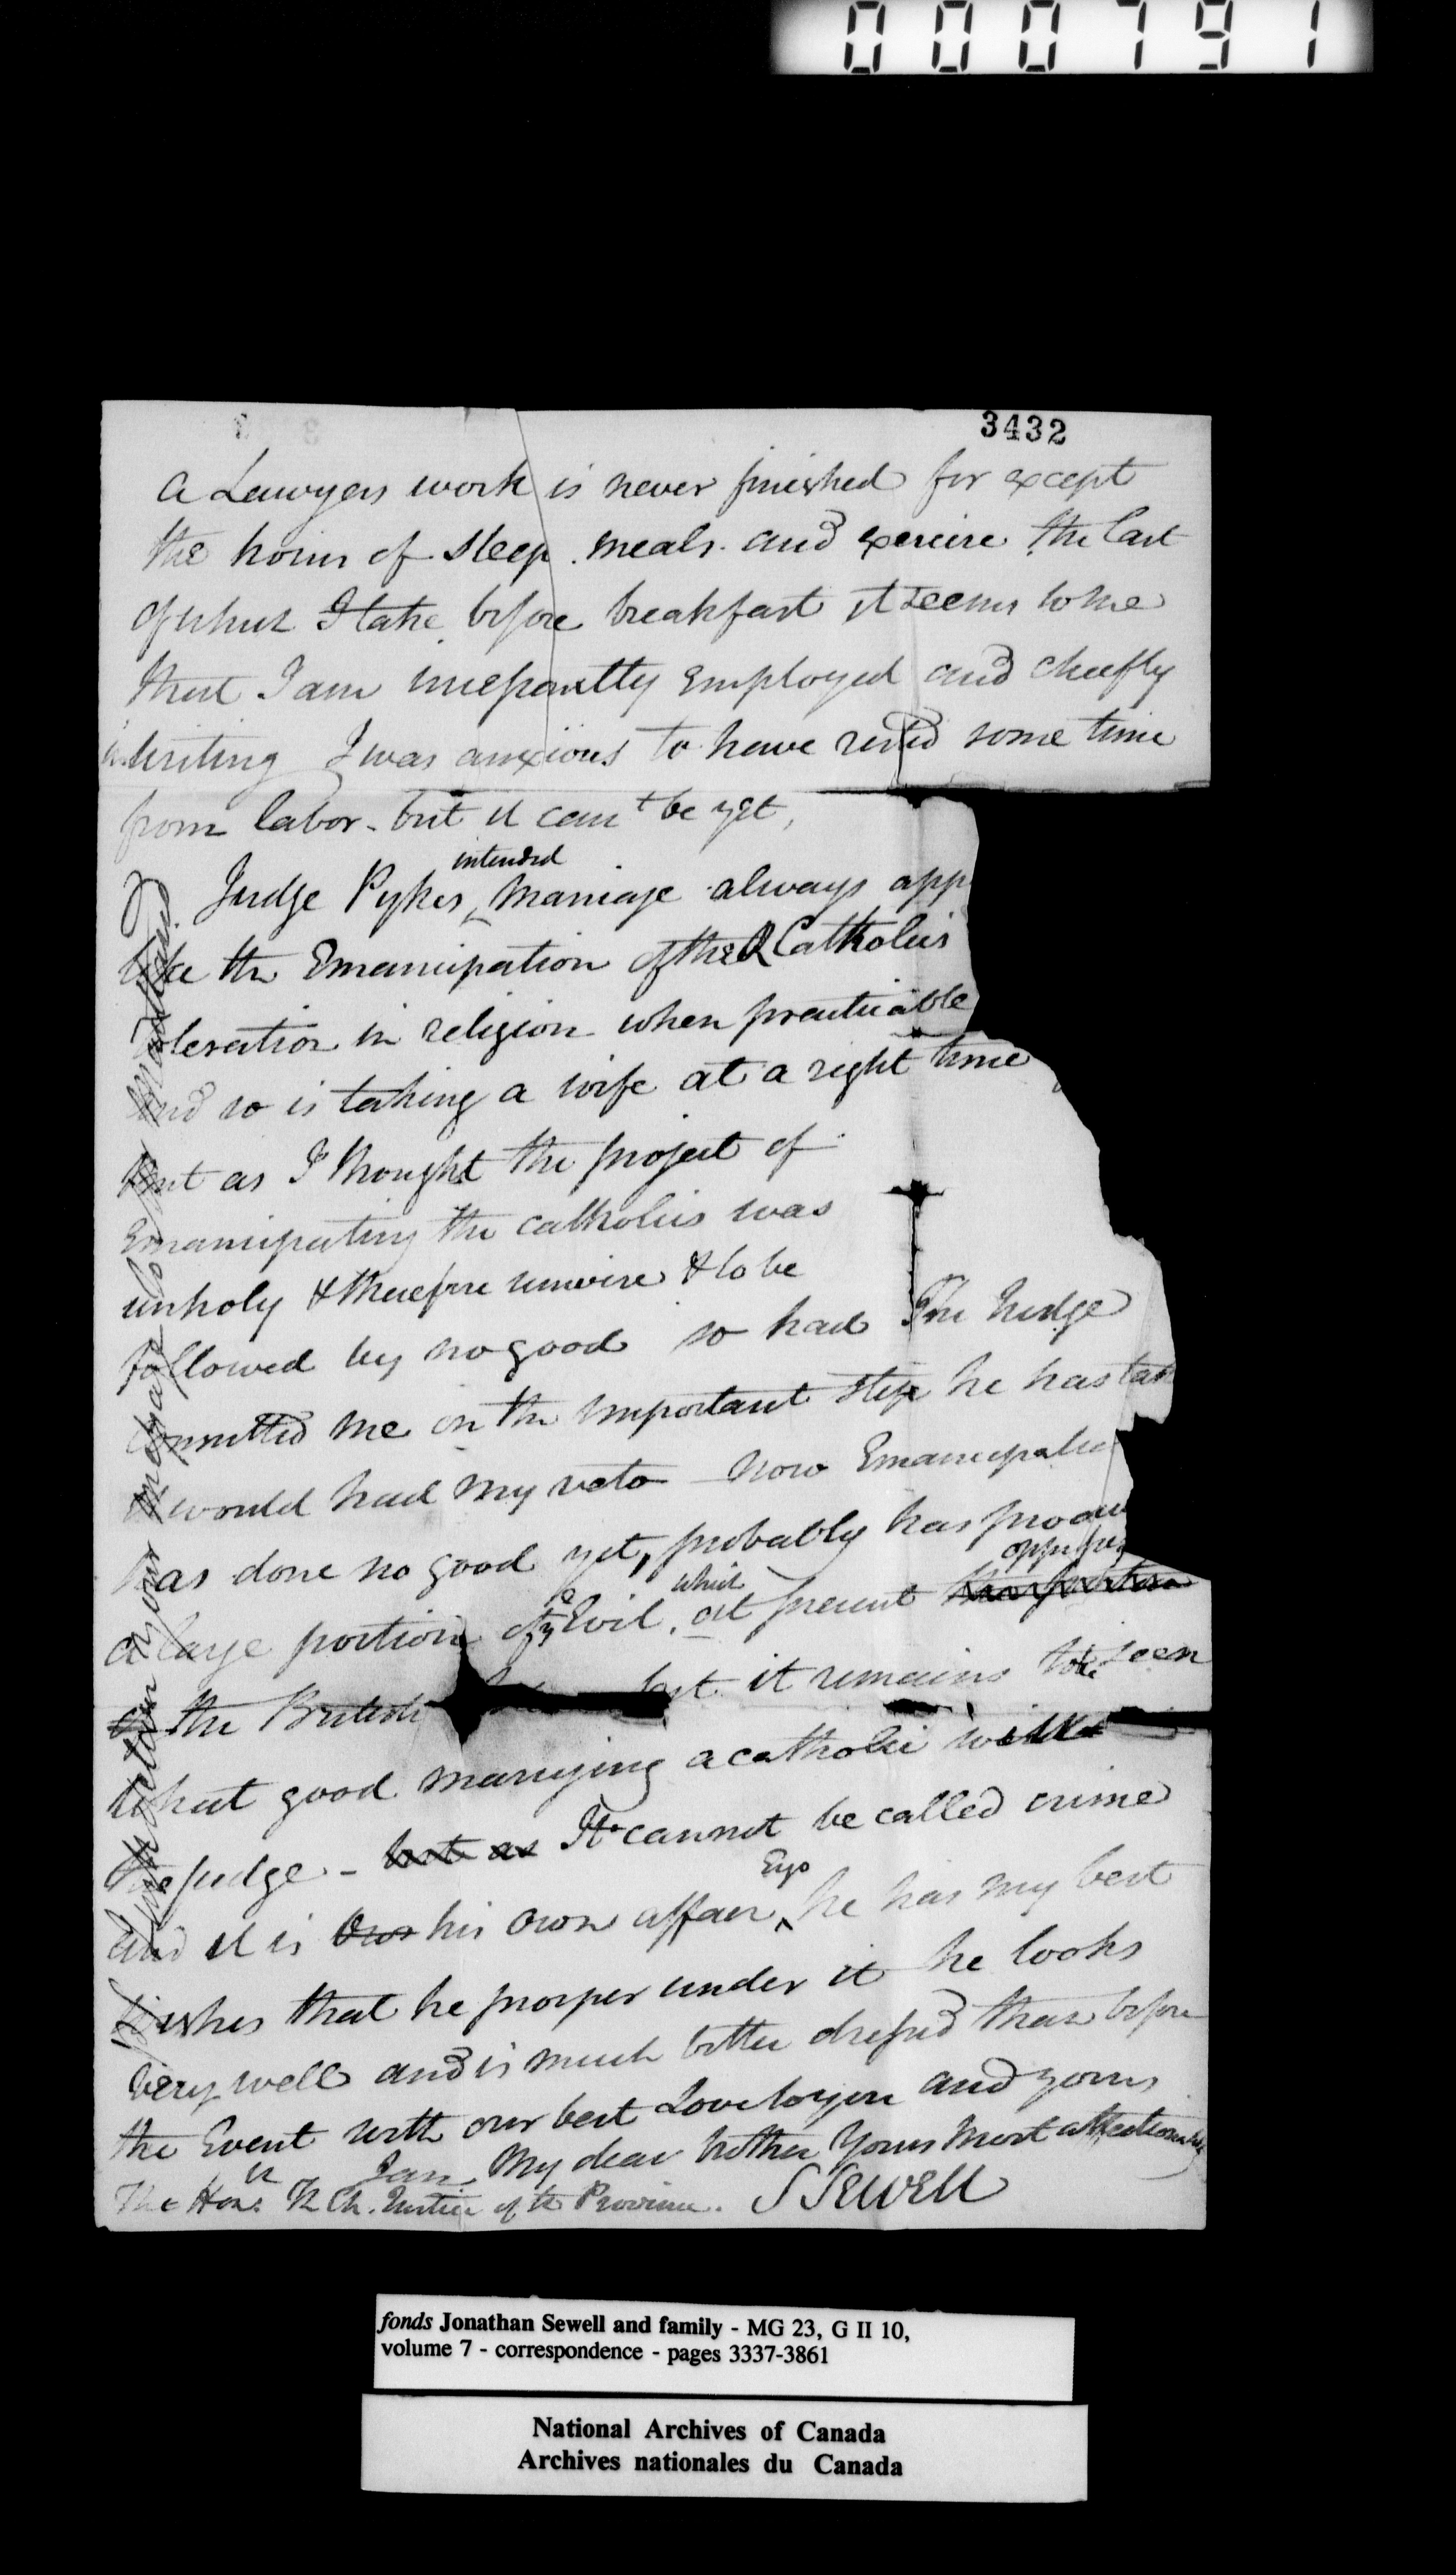 000791
3432
a Lawyers work is never finished for except
the hours of sleep. meals. and exercise the last
of which I take before breakfast it seems to me
that I am incessantly employed and cheefly
in writing I was anxious to have rested some time
from labor - but it can't be yet,
Judge Pykes intended marriage always app
like the Emancipation of the R Catholics
toleration in religion when practicable
and so is taking a wife at a right time
but as I thought the project of
Emancipating the catholics was
unholy & therefore unwise & to be
followed by no good so had the Judge
me on the important step he has tak
it would had my veto - now Emancipatio
has done no good yet, probably has produ
a large portion of Evil, which at present oppress
the British it remains to be seen
what good marrying a catholic will
the judge - but as It cannot be called crime
and it is his own affair, Ergo he has my best
wishes that he prosper under it he looks
very well and is much better dressed than before
the Event with our best Love to you and yours
I am My dear brother Yours most affectionately
The Hon. The Ch. Justice of the Province. S Sewell
fonds Jonathan Sewell and family - MG 23, G II 10,
volume 7 - correspondence - pages 3337-3861
National Archives of Canada
Archives nationales du Canada